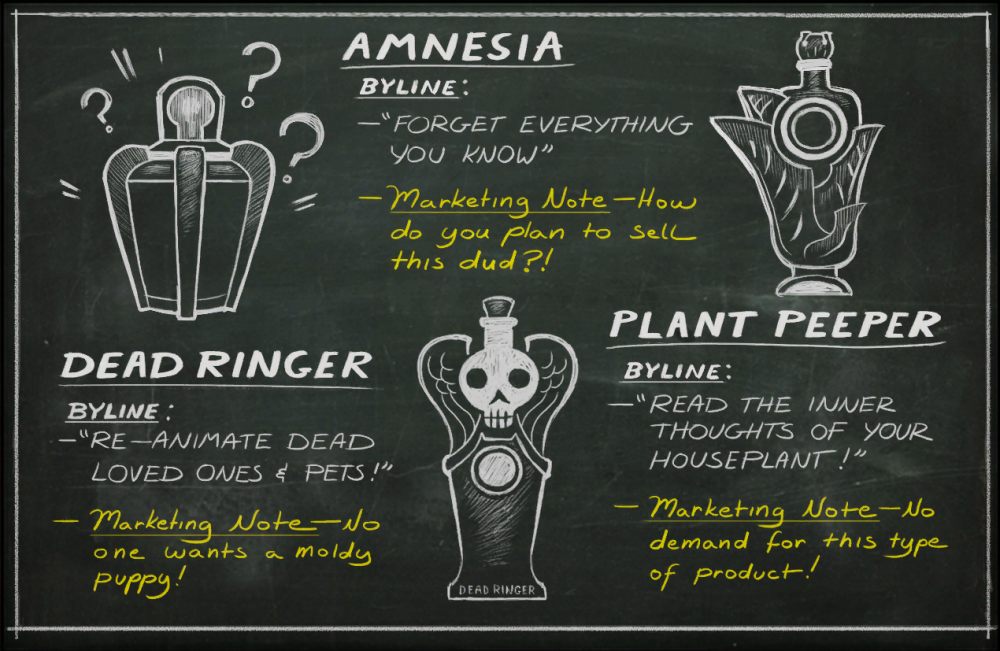 AMNESIA
BYLINE:
—"FORGET EVERYTHING
YOU KNOW"
— Marketing Note—How
do you plan to sell
this dud?!
DEAD RINGER
BYLINE:
—"RE—ANIMATE DEAD
LOVED ONES & PETS!"
— Marketing Note—No
one wants a moldy
puppy!
DEAD RINGER
PLANT PEEPER
BYLINE:
—"READ THE INNER
THOUGHTS OF YOUR
HOUSEPLANT!"
— Marketing Note—No
demand for this type
of product!
? ? ?